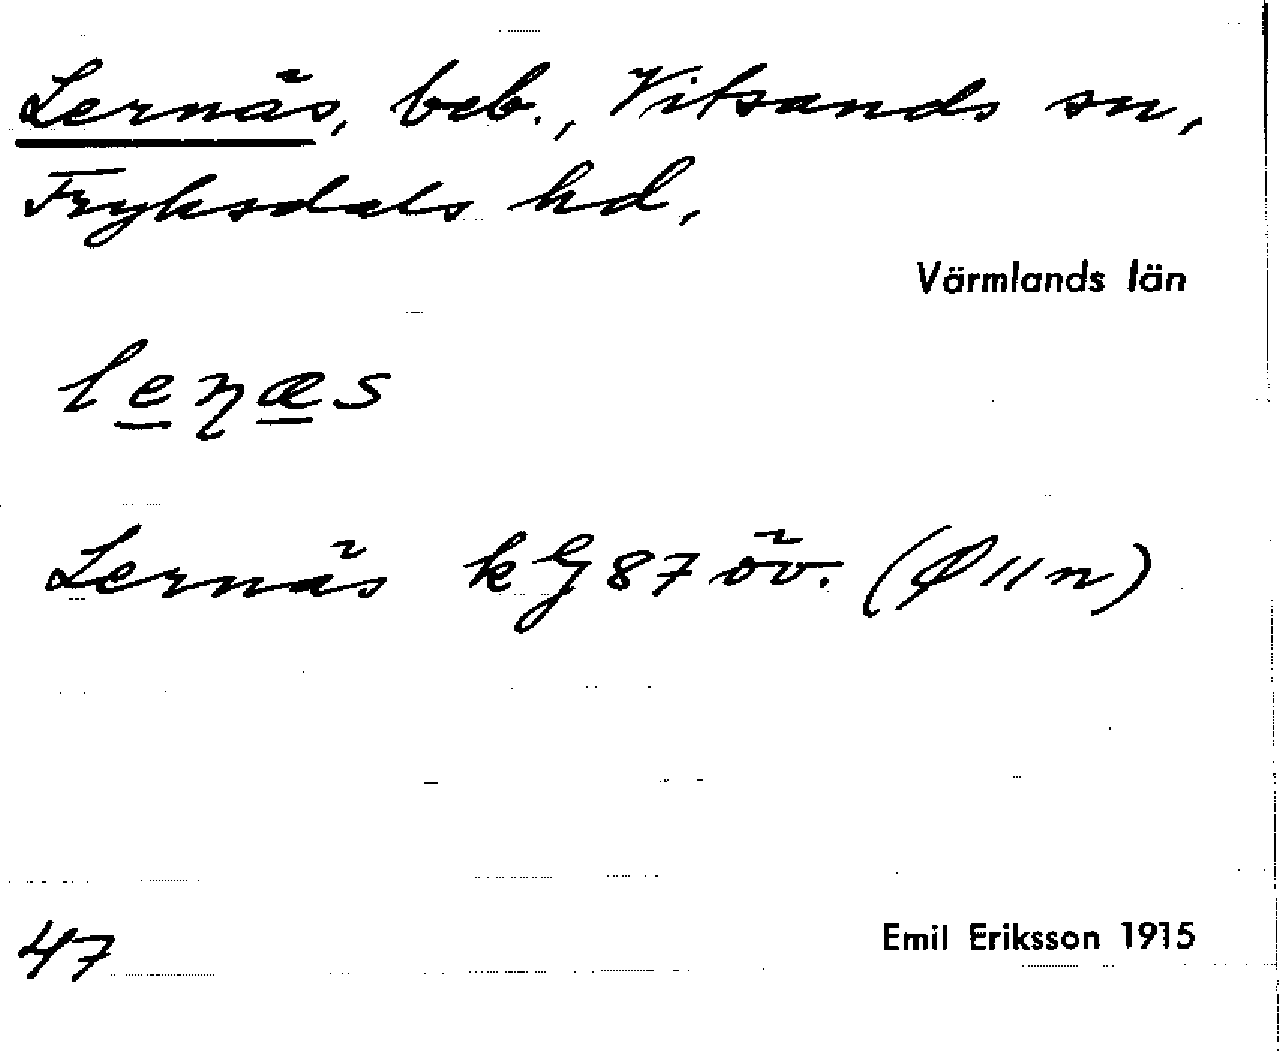 Lernäs, beb., Vitsands sn,
Fryksdals hd,
Värmlands län
lenæs
Lernäs kG 87 öv. (Ø 11 n)
47
Emil Eriksson 1915